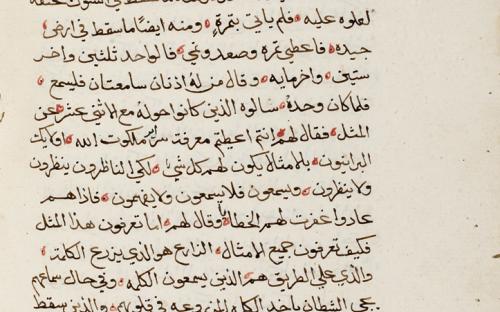 لعلوه عليه فلم ياتي بثمرة ومنه ايضًا ما سقط في ارض
جيده فاعطي ثمره وصعد ونمي فالواحد ثلثين واخر
ستين واخر مايه وقال من له اذنان سامعتان فليسمع
فلما كان وحده سالوه الذين كانوا حوله مع الاثني عشر عن
المثل فقال لهم انتم اعطيتم معرفة سراير ملكوت الله واوليك
البرانيون بالامثال يكون لهم كل شي لكي الناظرون ينظرون
ولا ينظرون ويسمعون فلا يسمعون ولا يفهمون فاذا هم
عادوا غفرت لهم الخطايا وقال لهم اما تعرفون هذا المثل
فكيف تعرفون جميع الامثال الزارع هو الذي يزرع الكلمة
والذي علي الطريق هم الذين يسمعون الكلمه وفي حال سماعهم
يجي الشيطان ياخد الكلام المزروعه في قلوبهم والذين سقط